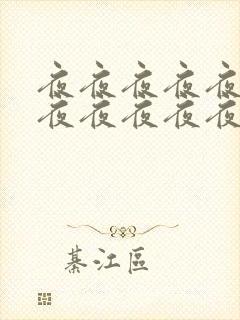 夜夜夜夜夜
夜夜夜夜夜
綦江區